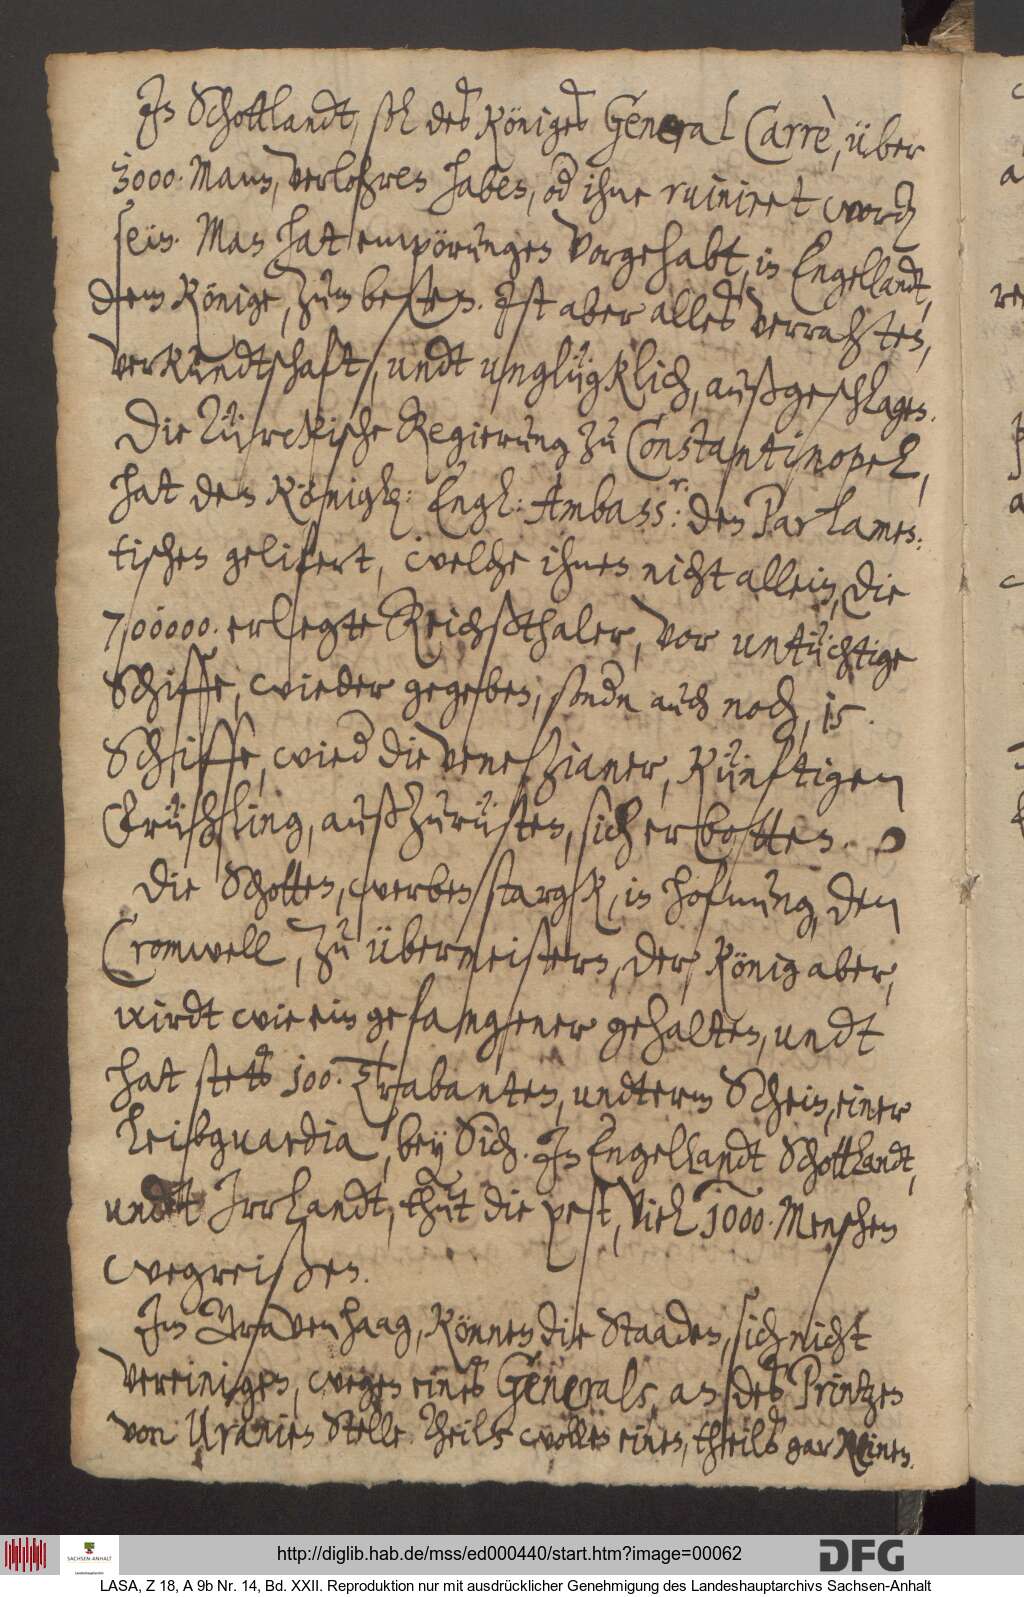 In Schottlandt, sol des Königes General Carrè, über
3000. Mann, verlohren haben, od ihne ruiniret word
sein. Man hat empörungen vorgehabt, in Engellandt,
dem Könige, zum besten. Ist aber alles verrahten,
verkundtschaft, undt unglügklich, außgeschlagen.
Die Türckische Regierung zu Constantinopel,
hat den Königl: Engl: Ambass:r den Parlamen:
tischen gelifert, welche ihnen nicht allein, die
700000. erlegte Reichßthaler, vor untüchtige
Schiffe, wieder gegeben, sondn auch noch, 15.
Schiffe, wied die Venezianer, künftigen
Früchling, außzurüsten, sich erbotten.
Die Schotten, werben stargk, in hofnung, den
Cromwell, zu übermeistern, der König aber,
wirdt wie ein gefangener gehalten, undt
hat stets 100. Trabanten, undterm Schein, einer
Leibguardia, bey Sich. In Engellandt Schottlandt,
undt Irrlandt, thut die pest, viel 1000. Menschen
wegreißen.
Im Graven Haag, können die Staaden, sich nicht
vereinigen, wegen eines Generals, an des Printzen
von Uranien Stelle. Theils wollen einen, theils gar keinen.
http://diglib.hab.de/mss/ed000440/start.htm?image=00062
DFG
SACHSEN-ANHALT
LASA, Z 18, A 9b Nr. 14, Bd. XXII. Reproduktion nur mit ausdrücklicher Genehmigung des Landeshauptarchivs Sachsen-Anhalt